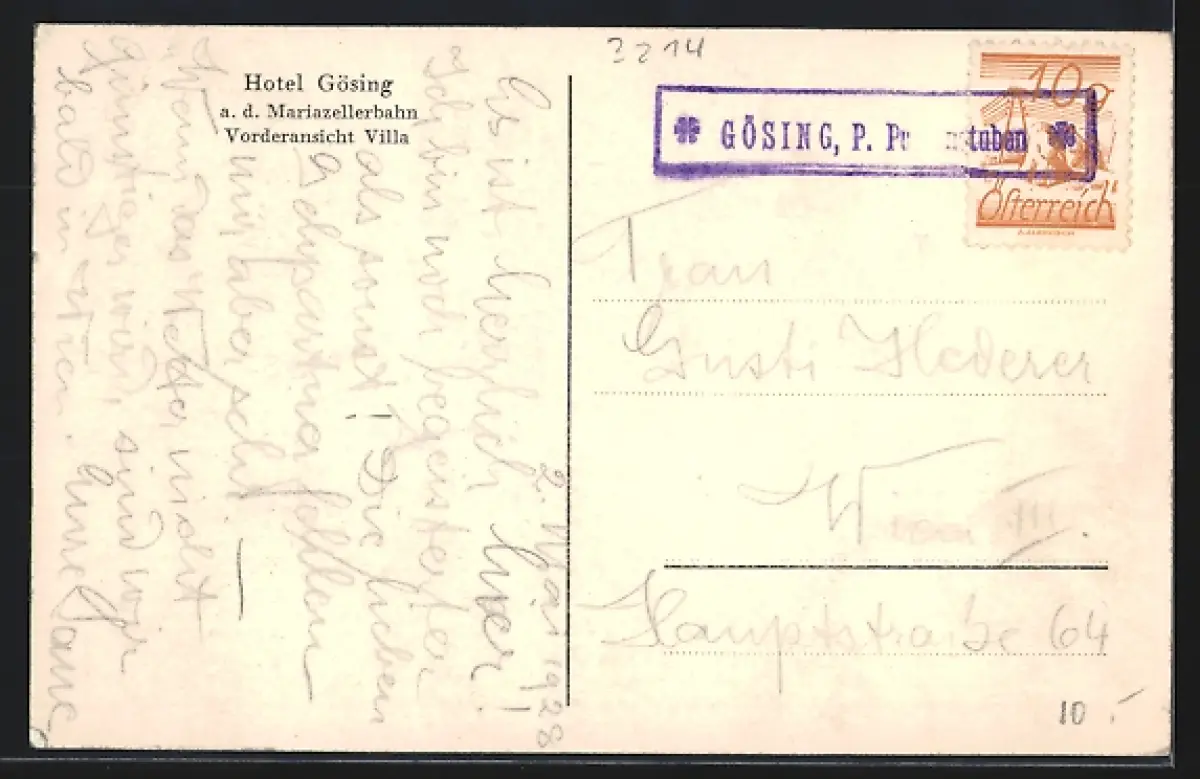 3214
Hotel Gösing
a. d. Mariazellerbahn
Vorderansicht Villa
GÖSING, P. Pu stuben
10 g
Österreich
2. Mai 1928
Es ist herzlich hier!
Ich bin noch begeisterter
als sonst! Die lieben
fehlen
mir aber sehr. —
Wenn das Wetter nicht
günstiger wird, sind wir
bald in Wien.
Frau
Gusti Hederer
Wien III.
Hauptstraße 64
10.-